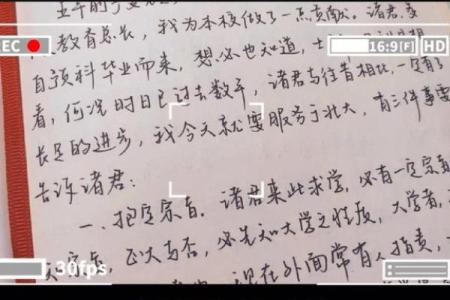 五年前
教育总长，我为本校做了一点贡献。诸君多
自预科毕业而来，想必也知道，
看，何况时日已过去数年，诸君与往昔相比，一定有了
长足的进步，我今天就要服务于北大，有三件事要
告诉诸君：
一、抱定宗旨。诸君来此求学，必有一定宗旨
宗旨，正大与否，必先知大学之性质，大学者，
现在外面常有人指责，
EC
16:9[F]
HD
30fps